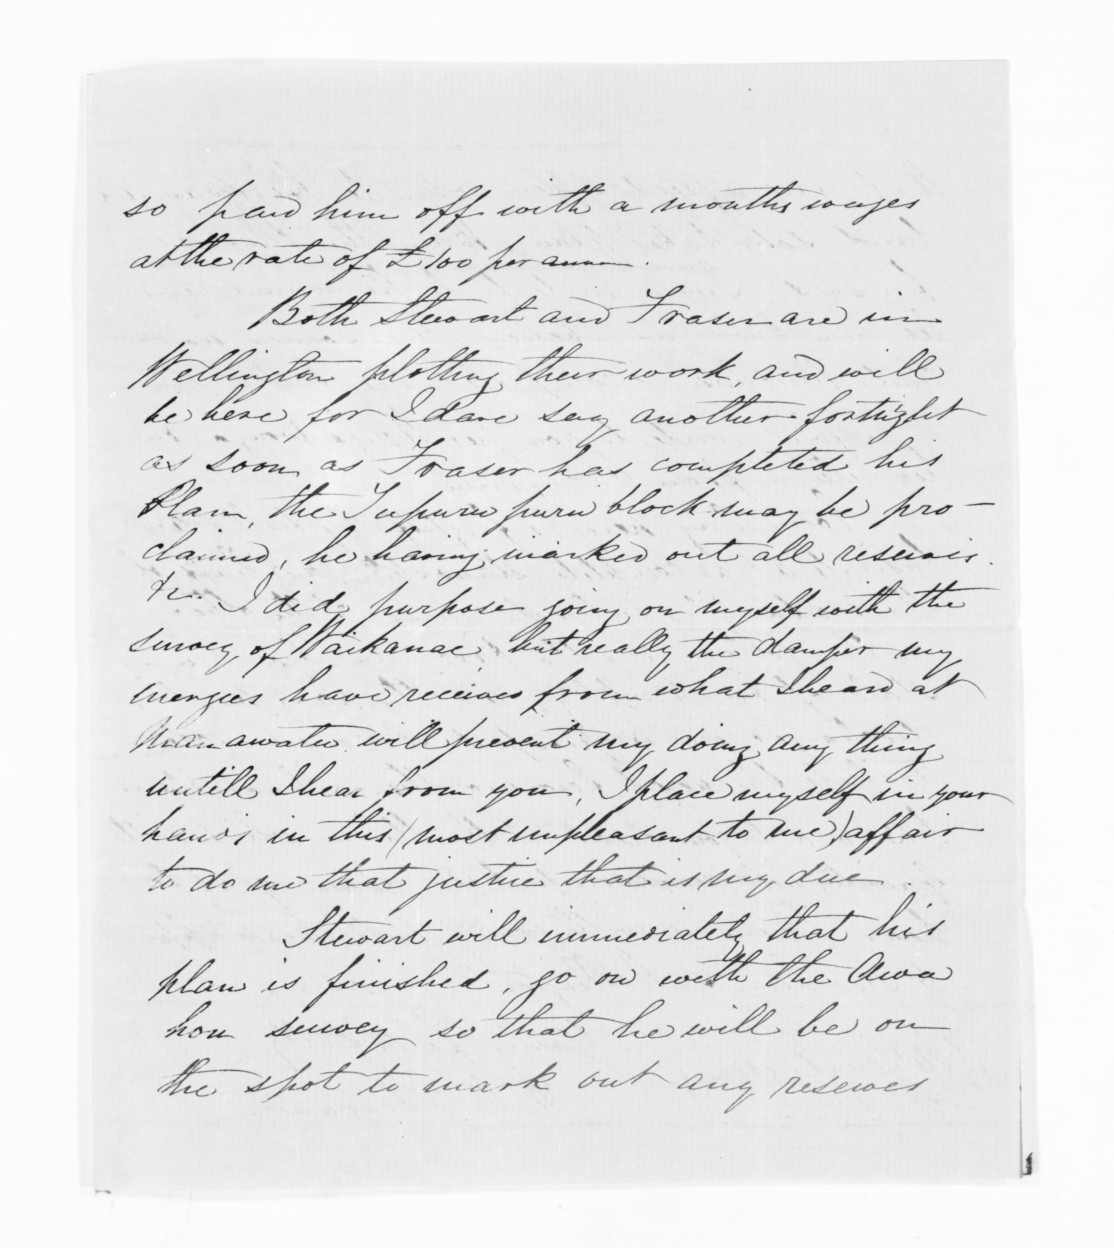 so paid him off with a months wages
at the rate of £100 per annum.
Both Stewart and Fraser are in
Wellington plotting their work, and will
be here for I dare say another fortnight
as soon as Fraser has completed his
Plan, the Tupuru puru block may be pro-
claimed, he having marked out all reserves.
&c. I did purpose going on myself with the
survey of Waikanae, but really the damper my
energies have received from what I heard at
Manawatu will prevent my doing any thing
untill I hear from you, I place myself in your
hands in this (most unpleasant to me,) affair
to do me that justice that is my due.
Stewart will immediately that his
plan is finished, go on with the Awa
hou survey so that he will be on
the spot to mark out any reserves